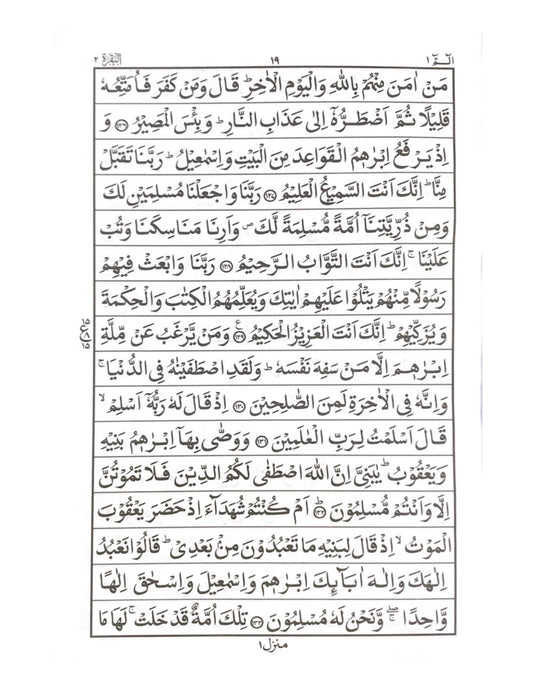 الٓمّٓ ١ ١٩ البقرة ٢
مَنْ اٰمَنَ مِنْهُمْ بِاللّٰهِ وَالْيَوْمِ الْاٰخِرِ ؕ قَالَ وَمَنْ كَفَرَ فَاُمَتِّعُهٗ
قَلِيْلًا ثُمَّ اَضْطَرُّهٗۤ اِلٰى عَذَابِ النَّارِ ؕ وَبِئْسَ الْمَصِيْرُ ﴿۱۲۶﴾ وَ
اِذْ يَرْفَعُ اِبْرٰهٖمُ الْقَوَاعِدَ مِنَ الْبَيْتِ وَاِسْمٰعِيْلُ ؕ رَبَّنَا تَقَبَّلْ
مِنَّا ؕ اِنَّكَ اَنْتَ السَّمِيْعُ الْعَلِيْمُ ﴿۱۲۷﴾ رَبَّنَا وَاجْعَلْنَا مُسْلِمَيْنِ لَكَ
وَمِنْ ذُرِّيَّتِنَاۤ اُمَّةً مُّسْلِمَةً لَّكَ ۪ وَاَرِنَا مَنَاسِكَنَا وَتُبْ
عَلَيْنَا ۚ اِنَّكَ اَنْتَ التَّوَّابُ الرَّحِيْمُ ﴿۱۲۸﴾ رَبَّنَا وَابْعَثْ فِيْهِمْ
رَسُوْلًا مِّنْهُمْ يَتْلُوْا عَلَيْهِمْ اٰيٰتِكَ وَيُعَلِّمُهُمُ الْكِتٰبَ وَالْحِكْمَةَ
وَيُزَكِّيْهِمْ ؕ اِنَّكَ اَنْتَ الْعَزِيْزُ الْحَكِيْمُ ﴿۱۲۹﴾ وَمَنْ يَّرْغَبُ عَنْ مِلَّةِ
اِبْرٰهٖمَ اِلَّا مَنْ سَفِهَ نَفْسَهٗ ؕ وَلَقَدِ اصْطَفَيْنٰهُ فِى الدُّنْيَا ۚ
وَاِنَّهٗ فِى الْاٰخِرَةِ لَمِنَ الصّٰلِحِيْنَ ﴿۱۳۰﴾ اِذْ قَالَ لَهٗ رَبُّهٗۤ اَسْلِمْ ۙ
قَالَ اَسْلَمْتُ لِرَبِّ الْعٰلَمِيْنَ ﴿۱۳۱﴾ وَوَصّٰى بِهَاۤ اِبْرٰهٖمُ بَنِيْهِ
وَيَعْقُوْبُ ؕ يٰبَنِىَّ اِنَّ اللّٰهَ اصْطَفٰى لَكُمُ الدِّيْنَ فَلَا تَمُوْتُنَّ
اِلَّا وَاَنْتُمْ مُّسْلِمُوْنَ ﴿۱۳۲﴾ ؕ اَمْ كُنْتُمْ شُهَدَآءَ اِذْ حَضَرَ يَعْقُوْبَ
الْمَوْتُ ۙ اِذْ قَالَ لِبَنِيْهِ مَا تَعْبُدُوْنَ مِنْۢ بَعْدِىْ ؕ قَالُوْا نَعْبُدُ
اِلٰهَكَ وَاِلٰهَ اٰبَآئِكَ اِبْرٰهٖمَ وَاِسْمٰعِيْلَ وَاِسْحٰقَ اِلٰهًا
وَّاحِدًا ۖۚ وَّنَحْنُ لَهٗ مُسْلِمُوْنَ ﴿۱۳۳﴾ تِلْكَ اُمَّةٌ قَدْ خَلَتْ ۚ لَهَا مَا
منزل ١